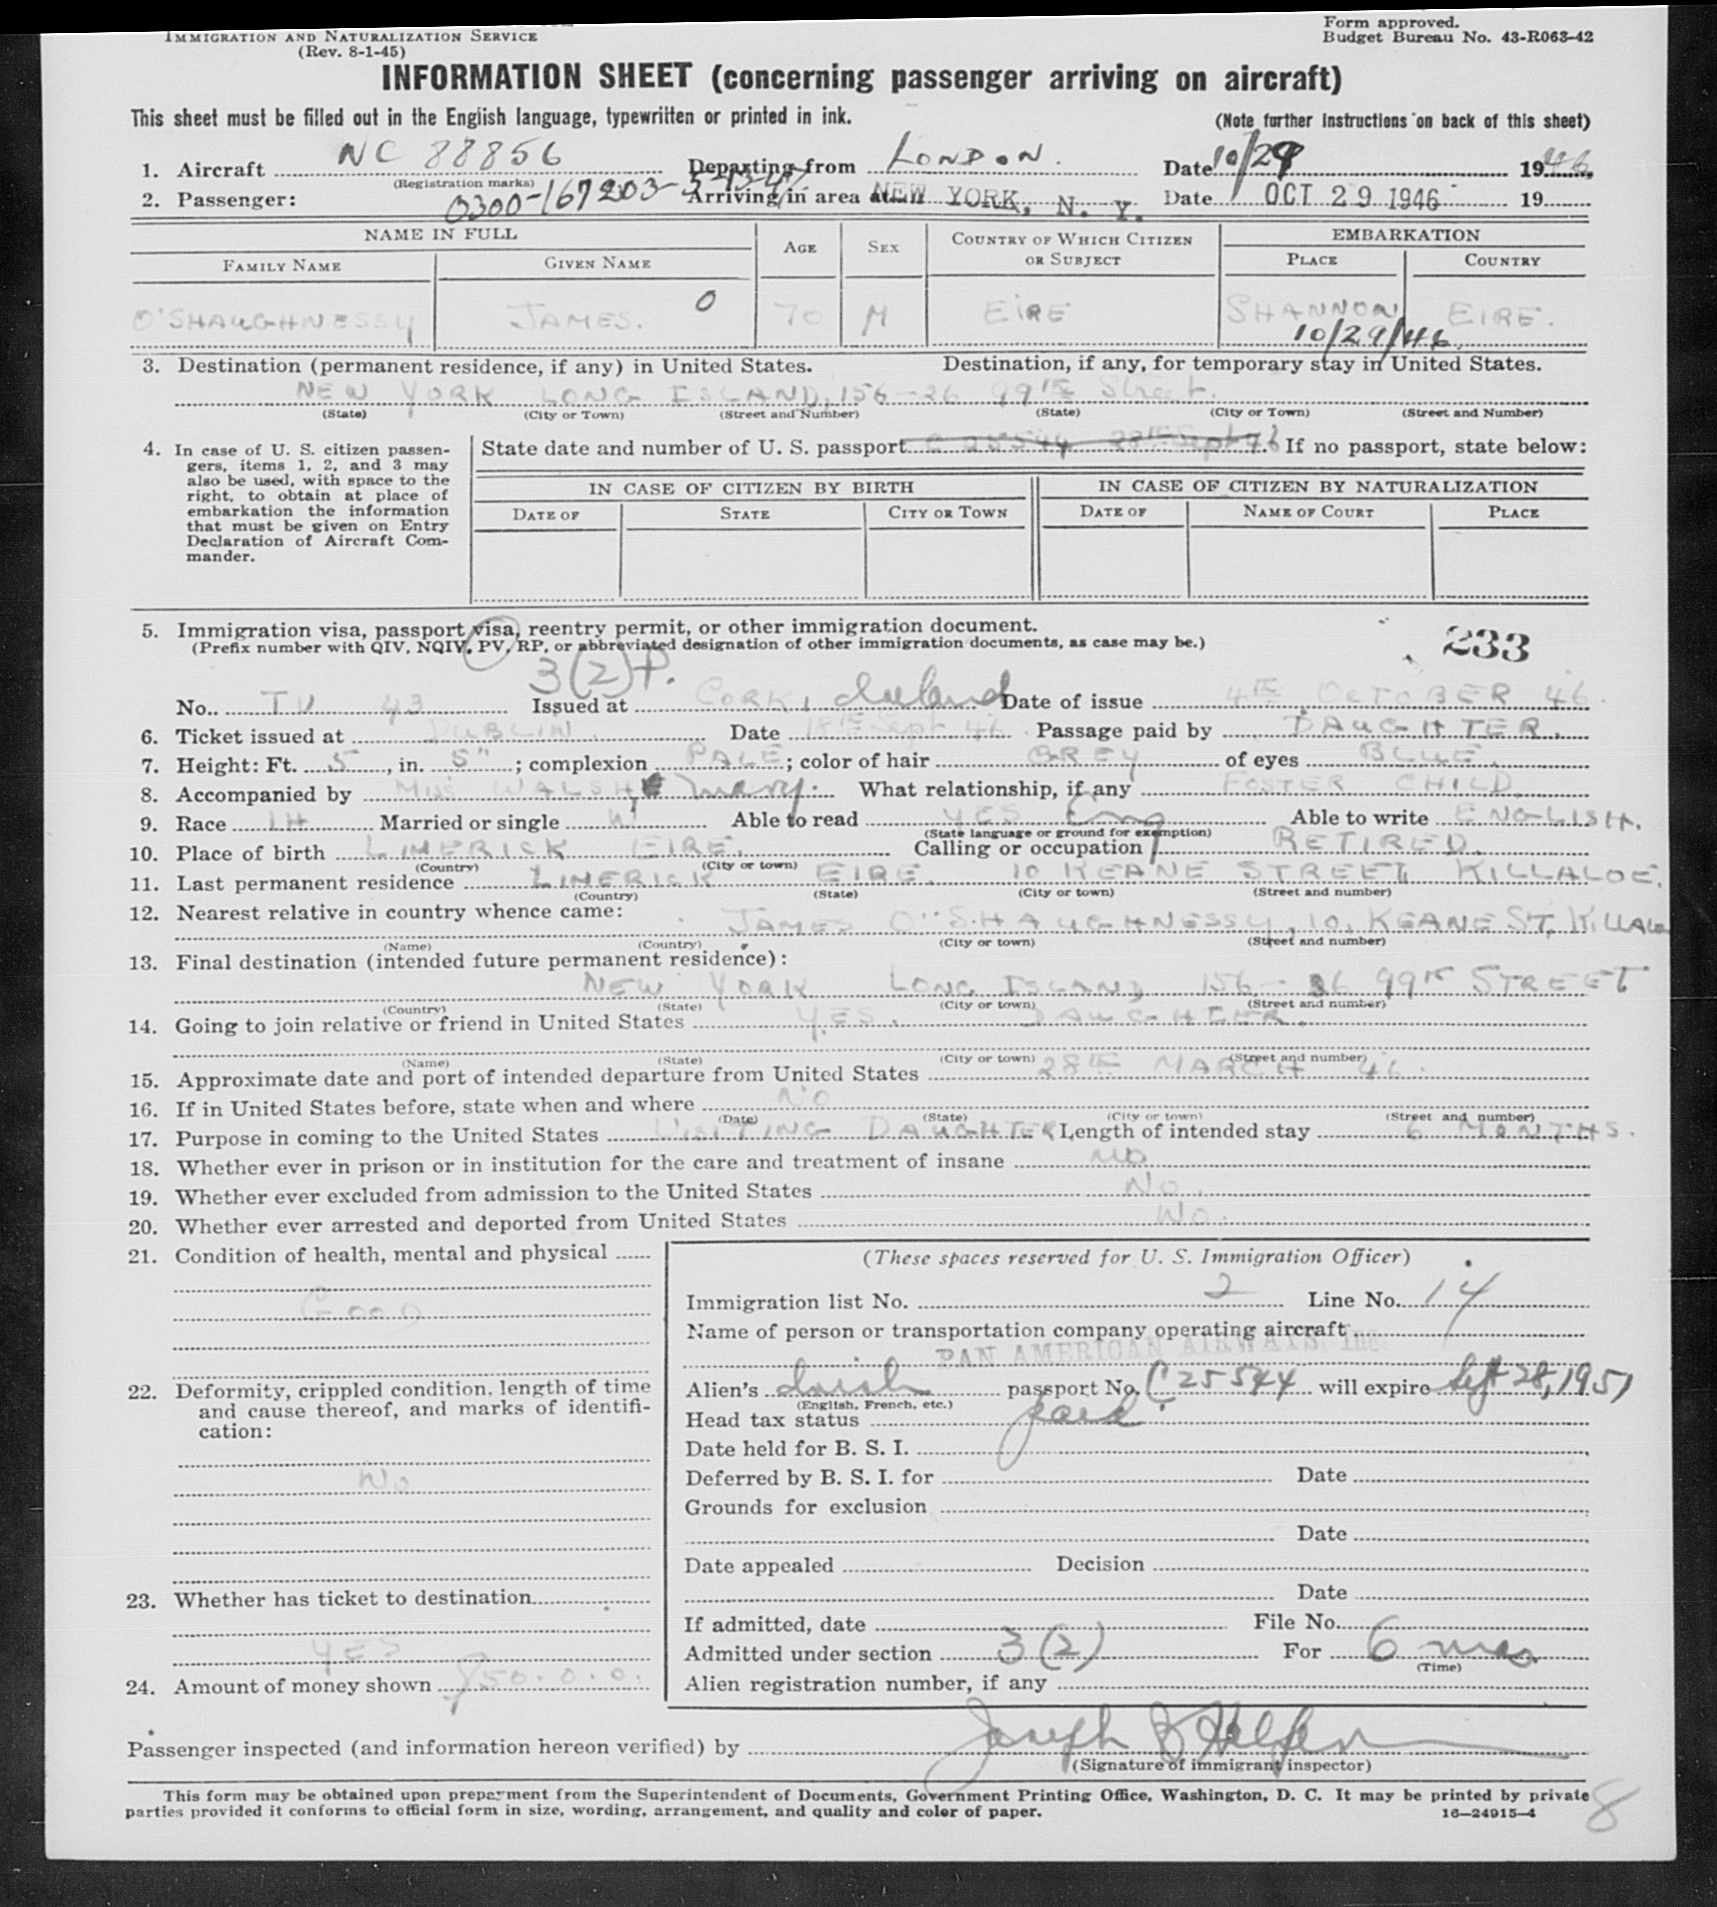 IMMIGRATION AND NATURALIZATION SERVICE
(Rev. 8-1-45)
Form approved.
Budget Bureau No. 43-R063-42
INFORMATION SHEET (concerning passenger arriving on aircraft)
This sheet must be filled out in the English language, typewritten or printed in ink.
(Note further instructions on back of this sheet)
1. Aircraft NC 88856 Departing from LONDON. Date 10/29 1946,
(Registration marks)
2. Passenger: 0300-167203- Arriving in area at NEW YORK, N. Y. Date OCT 29 1946 19
NAME IN FULL AGE SEX COUNTRY OF WHICH CITIZEN OR SUBJECT EMBARKATION
FAMILY NAME GIVEN NAME PLACE COUNTRY
O'SHAUGHNESSY JAMES. O 70 M EIRE SHANNON EIRE.
10/29/46
3. Destination (permanent residence, if any) in United States. Destination, if any, for temporary stay in United States.
NEW YORK LONG ISLAND, 156-26 99TH Street.
(State) (City or Town) (Street and Number) (State) (City or Town) (Street and Number)
4. In case of U. S. citizen passengers, items 1, 2, and 3 may also be used, with space to the right, to obtain at place of embarkation the information that must be given on Entry Declaration of Aircraft Commander.
State date and number of U. S. passport C 25544 28TH Sept 46 If no passport, state below:
IN CASE OF CITIZEN BY BIRTH IN CASE OF CITIZEN BY NATURALIZATION
DATE OF STATE CITY OR TOWN DATE OF NAME OF COURT PLACE
5. Immigration visa, passport visa, reentry permit, or other immigration document.
(Prefix number with QIV, NQIV, PV, RP, or abbreviated designation of other immigration documents, as case may be.)
233
3(2)P.
No. TV 43 Issued at CORK, Ireland Date of issue 4TH OCTOBER 46.
6. Ticket issued at DUBLIN. Date 18TH Sept 46. Passage paid by DAUGHTER.
7. Height: Ft. 5, in. 5"; complexion PALE; color of hair GREY of eyes BLUE.
8. Accompanied by Miss WALSH, Mary. What relationship, if any FOSTER CHILD.
9. Race IH Married or single W Able to read YES Eng Able to write ENGLISH.
(State language or ground for exemption)
10. Place of birth LIMERICK EIRE. Calling or occupation RETIRED.
(Country) (City or town)
11. Last permanent residence LIMERICK EIRE. 10 KEANE STREET, KILLALOE.
(Country) (State) (City or town) (Street and number)
12. Nearest relative in country whence came:
JAMES O'SHAUGHNESSY, 10, KEANE ST, KILLALOE
(Name) (Country) (City or town) (Street and number)
13. Final destination (intended future permanent residence):
NEW YORK LONG ISLAND 156-26 99TH STREET
(Country) (State) (City or town) (Street and number)
14. Going to join relative or friend in United States YES. DAUGHTER.
(Name) (State) (City or town) (Street and number)
15. Approximate date and port of intended departure from United States 28TH MARCH 46.
16. If in United States before, state when and where NO
(Date) (State) (City or town) (Street and number)
17. Purpose in coming to the United States VISITING DAUGHTER. Length of intended stay 6 MONTHS.
18. Whether ever in prison or in institution for the care and treatment of insane NO
19. Whether ever excluded from admission to the United States NO.
20. Whether ever arrested and deported from United States NO.
21. Condition of health, mental and physical
GOOD
22. Deformity, crippled condition, length of time and cause thereof, and marks of identification:
NO
23. Whether has ticket to destination
YES
24. Amount of money shown £50.0.0.
(These spaces reserved for U. S. Immigration Officer)
Immigration list No. 2 Line No. 14
Name of person or transportation company operating aircraft
PAN AMERICAN AIRWAYS INC.
Alien's Irish passport No. C 25544 will expire Sept 28, 1951
(English, French, etc.)
Head tax status paid
Date held for B. S. I.
Deferred by B. S. I. for Date
Grounds for exclusion
Date
Date appealed Decision
Date
If admitted, date File No.
Admitted under section 3(2) For 6 mos.
(Time)
Alien registration number, if any
Passenger inspected (and information hereon verified) by Joseph
(Signature of immigrant inspector)
This form may be obtained upon prepayment from the Superintendent of Documents, Government Printing Office, Washington, D. C. It may be printed by private
parties provided it conforms to official form in size, wording, arrangement, and quality and color of paper.
16-24915-4
8